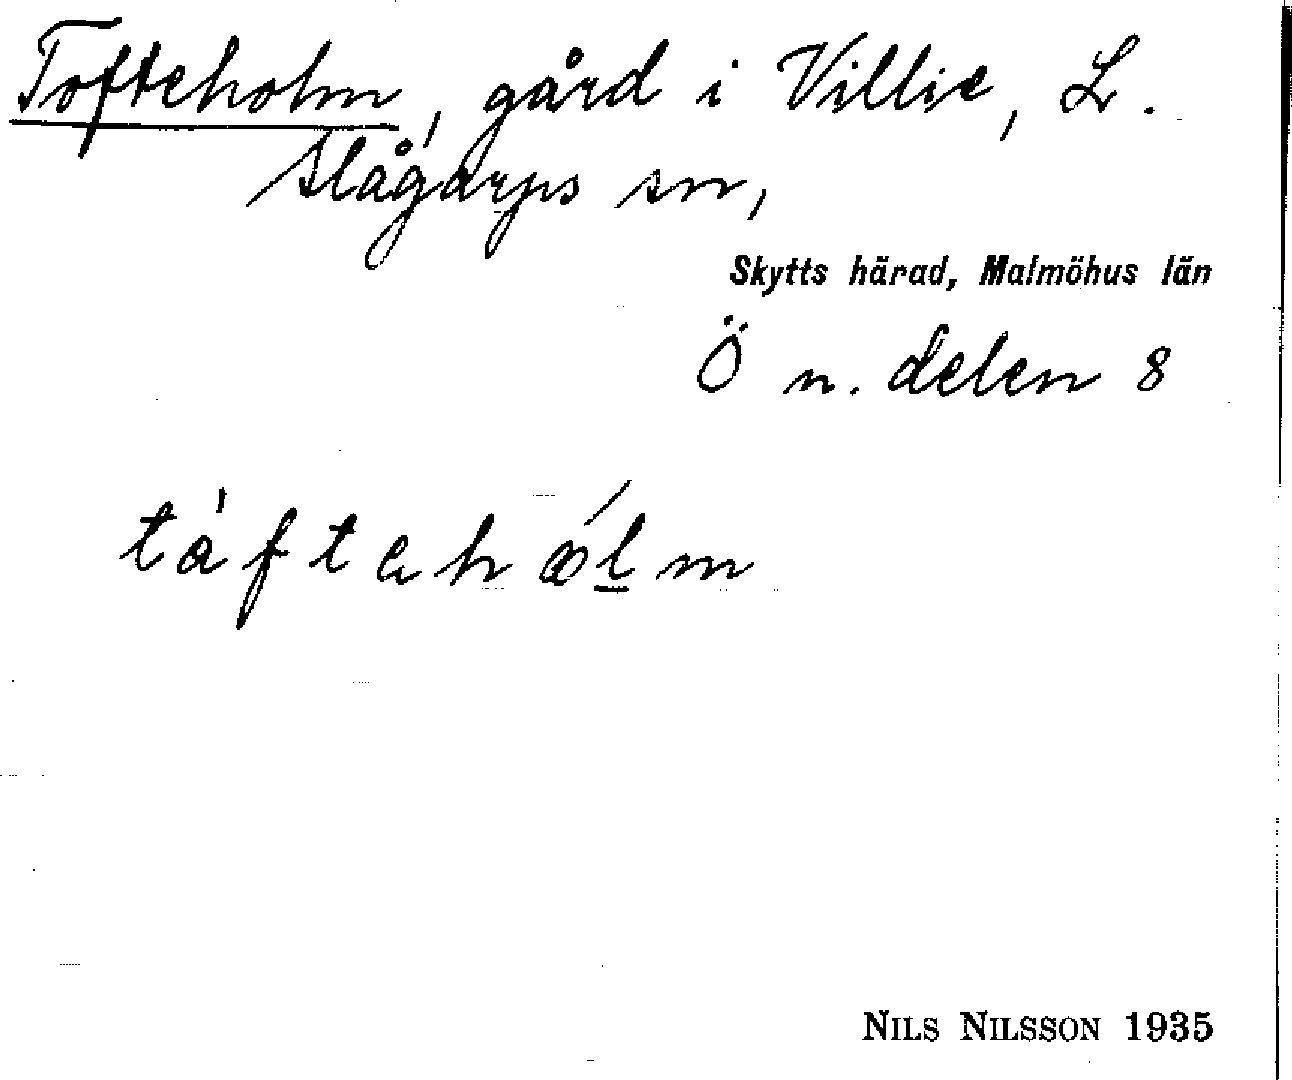 Tofteholm, gård i Villie, L.
Slågarps sn,
Skytts härad, Malmöhus län
Ö n. delen 8
NILS NILSSON 1935